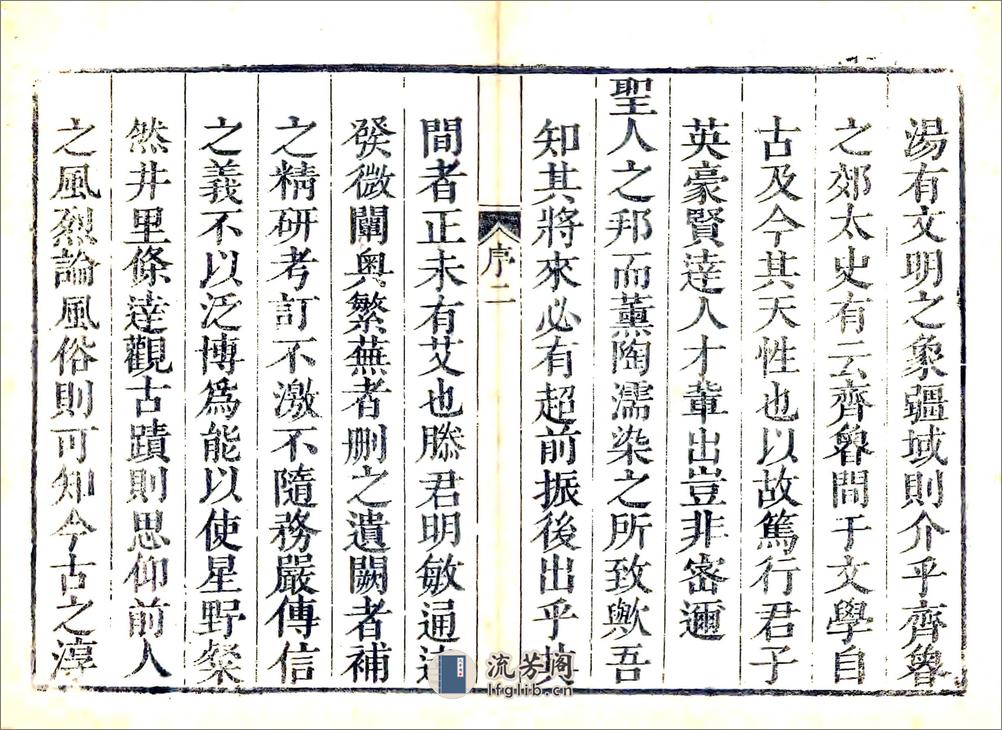 湯有文明之象疆域則介乎齊魯
之郊太史有云齊魯間于文學自
古及今其天性也以故篤行君子
英豪賢達人才輩出豈非密邇
聖人之邦而薰陶濡染之所致歟吾
知其將來必有超前振後出乎其
序二
間者正未有艾也滕君明敏通達
發微闡奧繁蕪者刪之遺闕者補
之精研考訂不激不隨務嚴傳信
之義不以泛博為能以使星野燦
然井里條達觀古蹟則思仰前人
之風烈論風俗則可知今古之淳
流芳阁
lfglib.cn